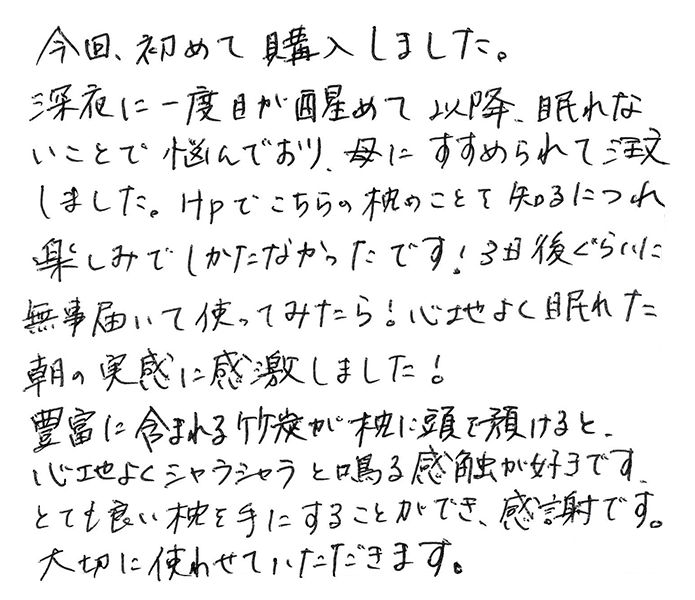 今回、初めて購入しました。
深夜に一度目が醒めて以降、眠れな
いことで悩んでおり、母にすすめられて注文
しました。HPでこちらの枕のことを知るにつれ
楽しみでしかたなかったです!3日後ぐらいに
無事届いて使ってみたら!心地よく眠れた
朝の実感に感激しました!
豊富に含まれる竹炭が枕に頭を預けると、
心地よくシャラシャラと鳴る感触が好きです、
とても良い枕を手にすることができ、感謝です。
大切に使わせていただきます。